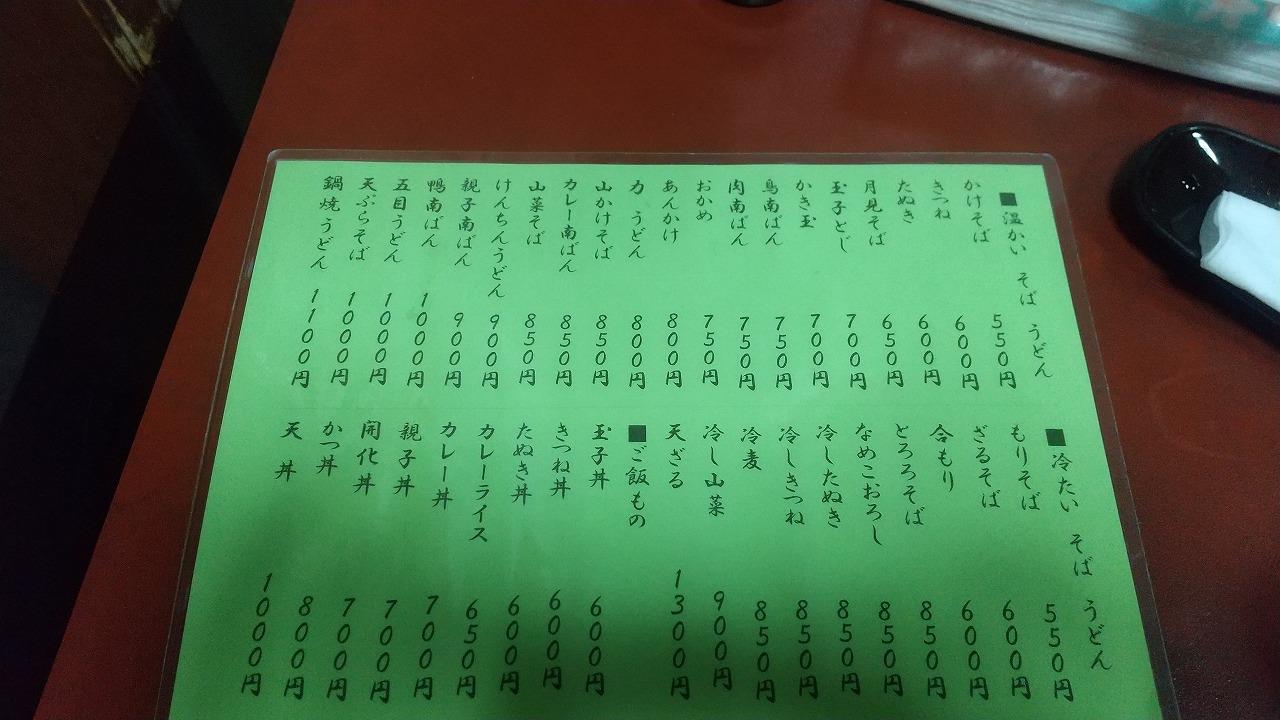 ■温かい そば うどん
かけそば 550円
きつね 600円
たぬき 600円
月見そば 650円
玉子とじ 700円
かき玉 700円
鳥南ばん 750円
肉南ばん 750円
おかめ 750円
あんかけ 800円
力 うどん 800円
山かけそば 850円
カレー南ばん 850円
山菜そば 850円
けんちんうどん 900円
親子南ばん 900円
鴨南ばん 1000円
五目うどん 1000円
天ぷらそば 1000円
鍋焼うどん 1100円
■冷たい そば うどん
もりそば 550円
ざるそば 600円
合もり 600円
とろろそば 850円
なめこおろし 850円
冷したぬき 850円
冷しきつね 850円
冷麦 850円
冷し山菜 900円
天ざる 1300円
■ご飯もの
玉子丼 600円
きつね丼 600円
たぬき丼 600円
カレーライス 650円
カレー丼 700円
親子丼 700円
開化丼 700円
かつ丼 800円
天 丼 1000円